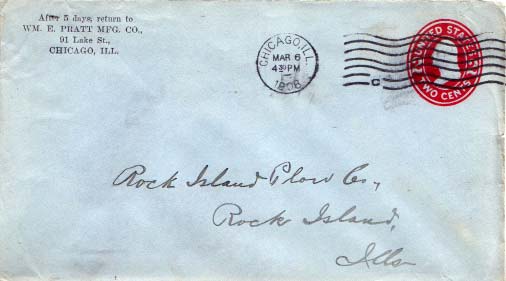 After 5 days, return to
WM. E. PRATT MFG. CO.,
91 Lake St.,
CHICAGO, ILL.
CHICAGO, ILL.
MAR 6
430 PM
1908
C
UNITED STATES
TWO CENTS
Rock Island Plow Co.,
Rock Island,
Ills